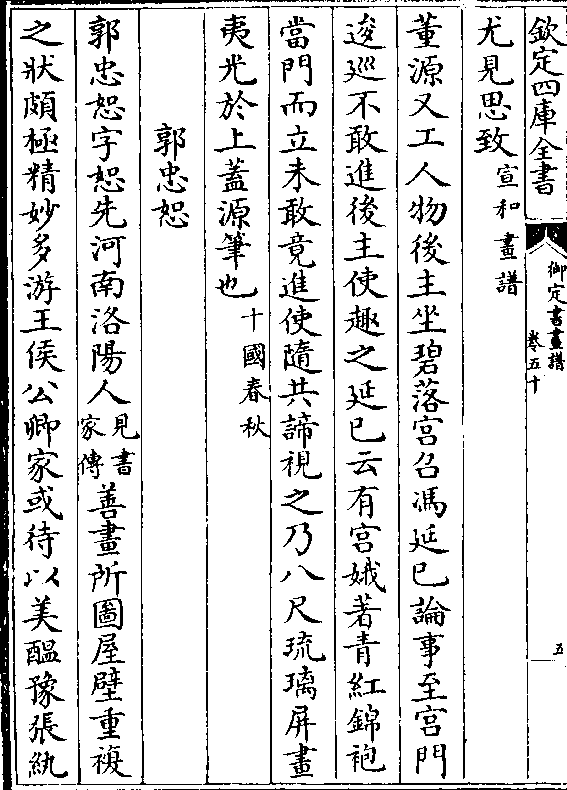 欽定四庫全書
御定書畫譜
卷五十
五
尤見思致宣和畫譜
董源又工人物後主坐碧落宮召馮延巳論事至宮門
逡巡不敢進後主使趣之延巳云有宮娥著青紅錦袍
當門而立未敢竟進使隨共諦視之乃八尺琉璃屏畫
夷光於上蓋源筆也十國春秋
郭忠恕
郭忠恕字恕先河南洛陽人見書家傳善畫所圖屋壁重複
之狀頗極精妙多游王侯公卿家或待以美醖豫張紈